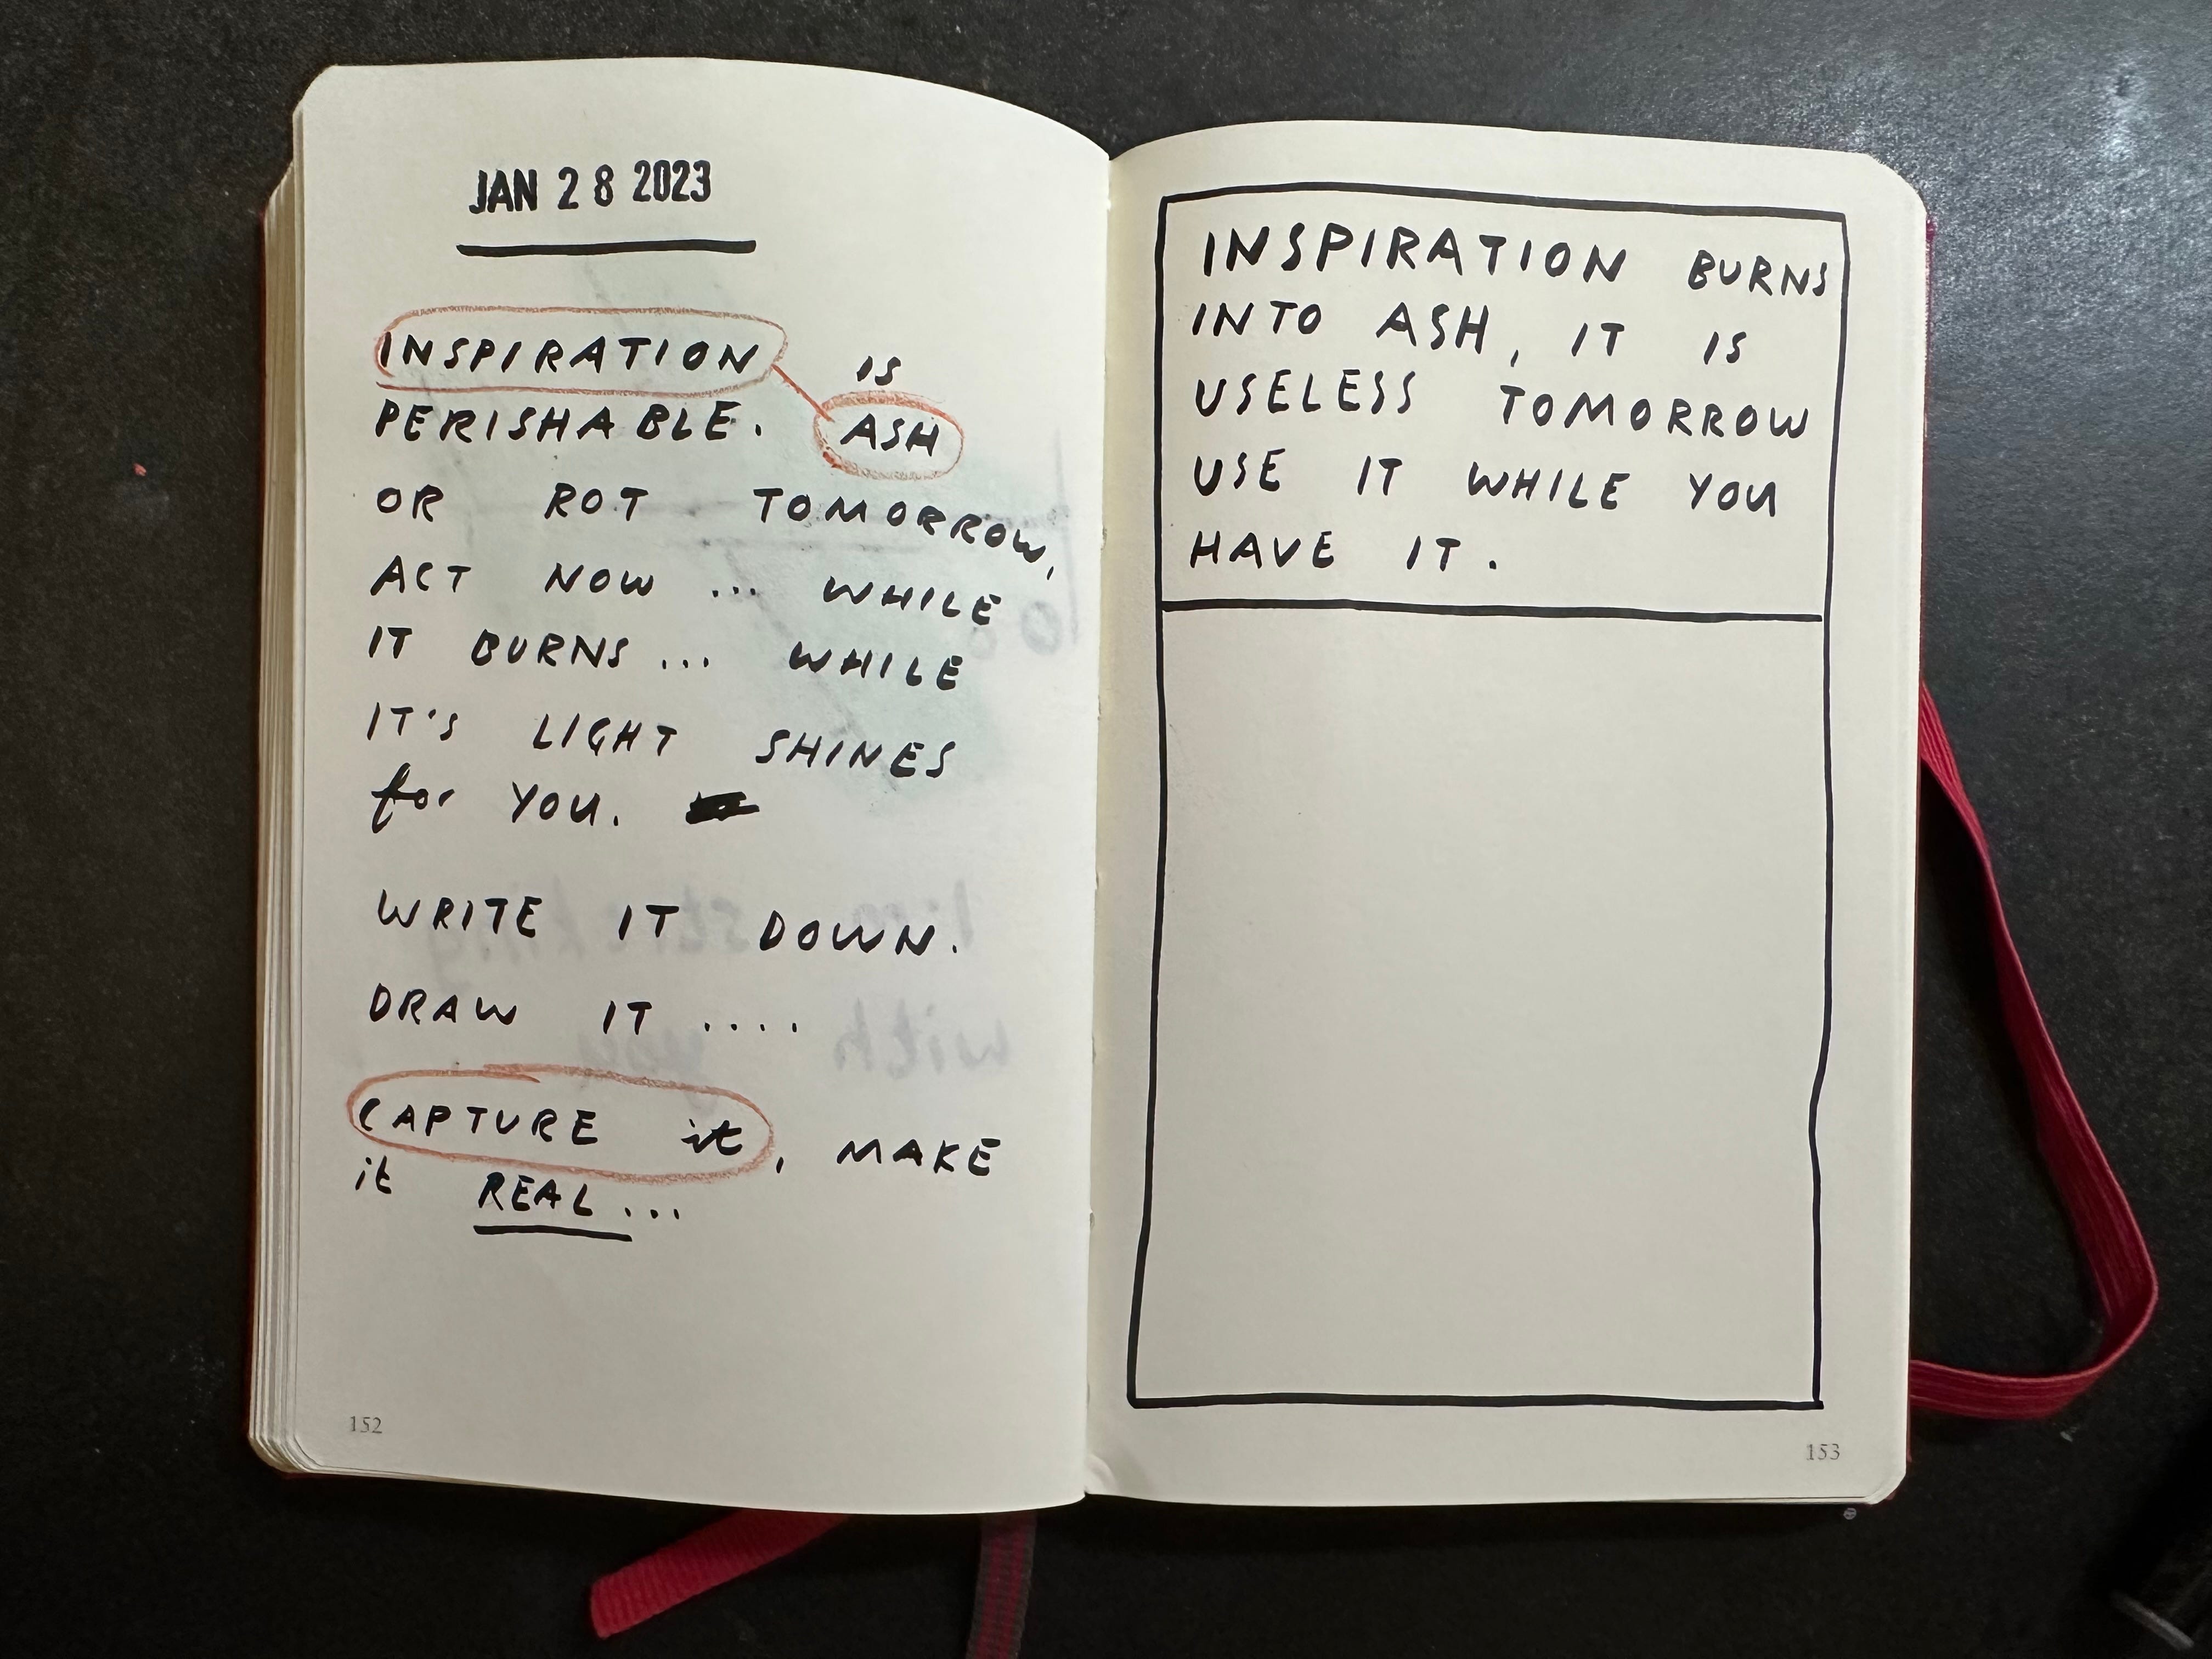 JAN 28 2023
INSPIRATION IS
PERISHABLE. ASH
OR ROT TOMORROW,
ACT NOW ... WHILE
IT BURNS ... WHILE
IT'S LIGHT SHINES
for YOU.
WRITE IT DOWN.
DRAW IT ....
CAPTURE it, MAKE
it REAL...
152
INSPIRATION BURNS
INTO ASH, IT IS
USELESS TOMORROW
USE IT WHILE YOU
HAVE IT.
153